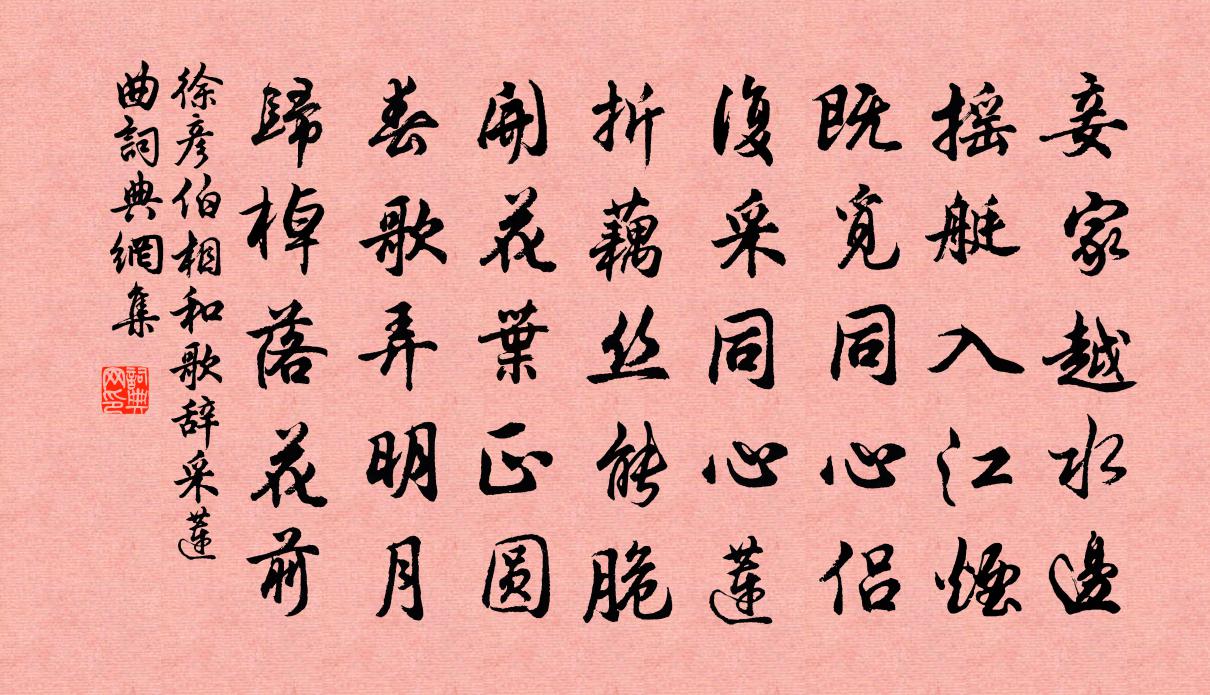 妾家越水邊
摇艇入江煙
既覓同心侣
復采同心蓮
折藕丝能脆
開花葉正圆
春歌弄明月
歸棹落花前
徐彦伯相和歌辞采蓮
曲詞典網集
詞典
网印